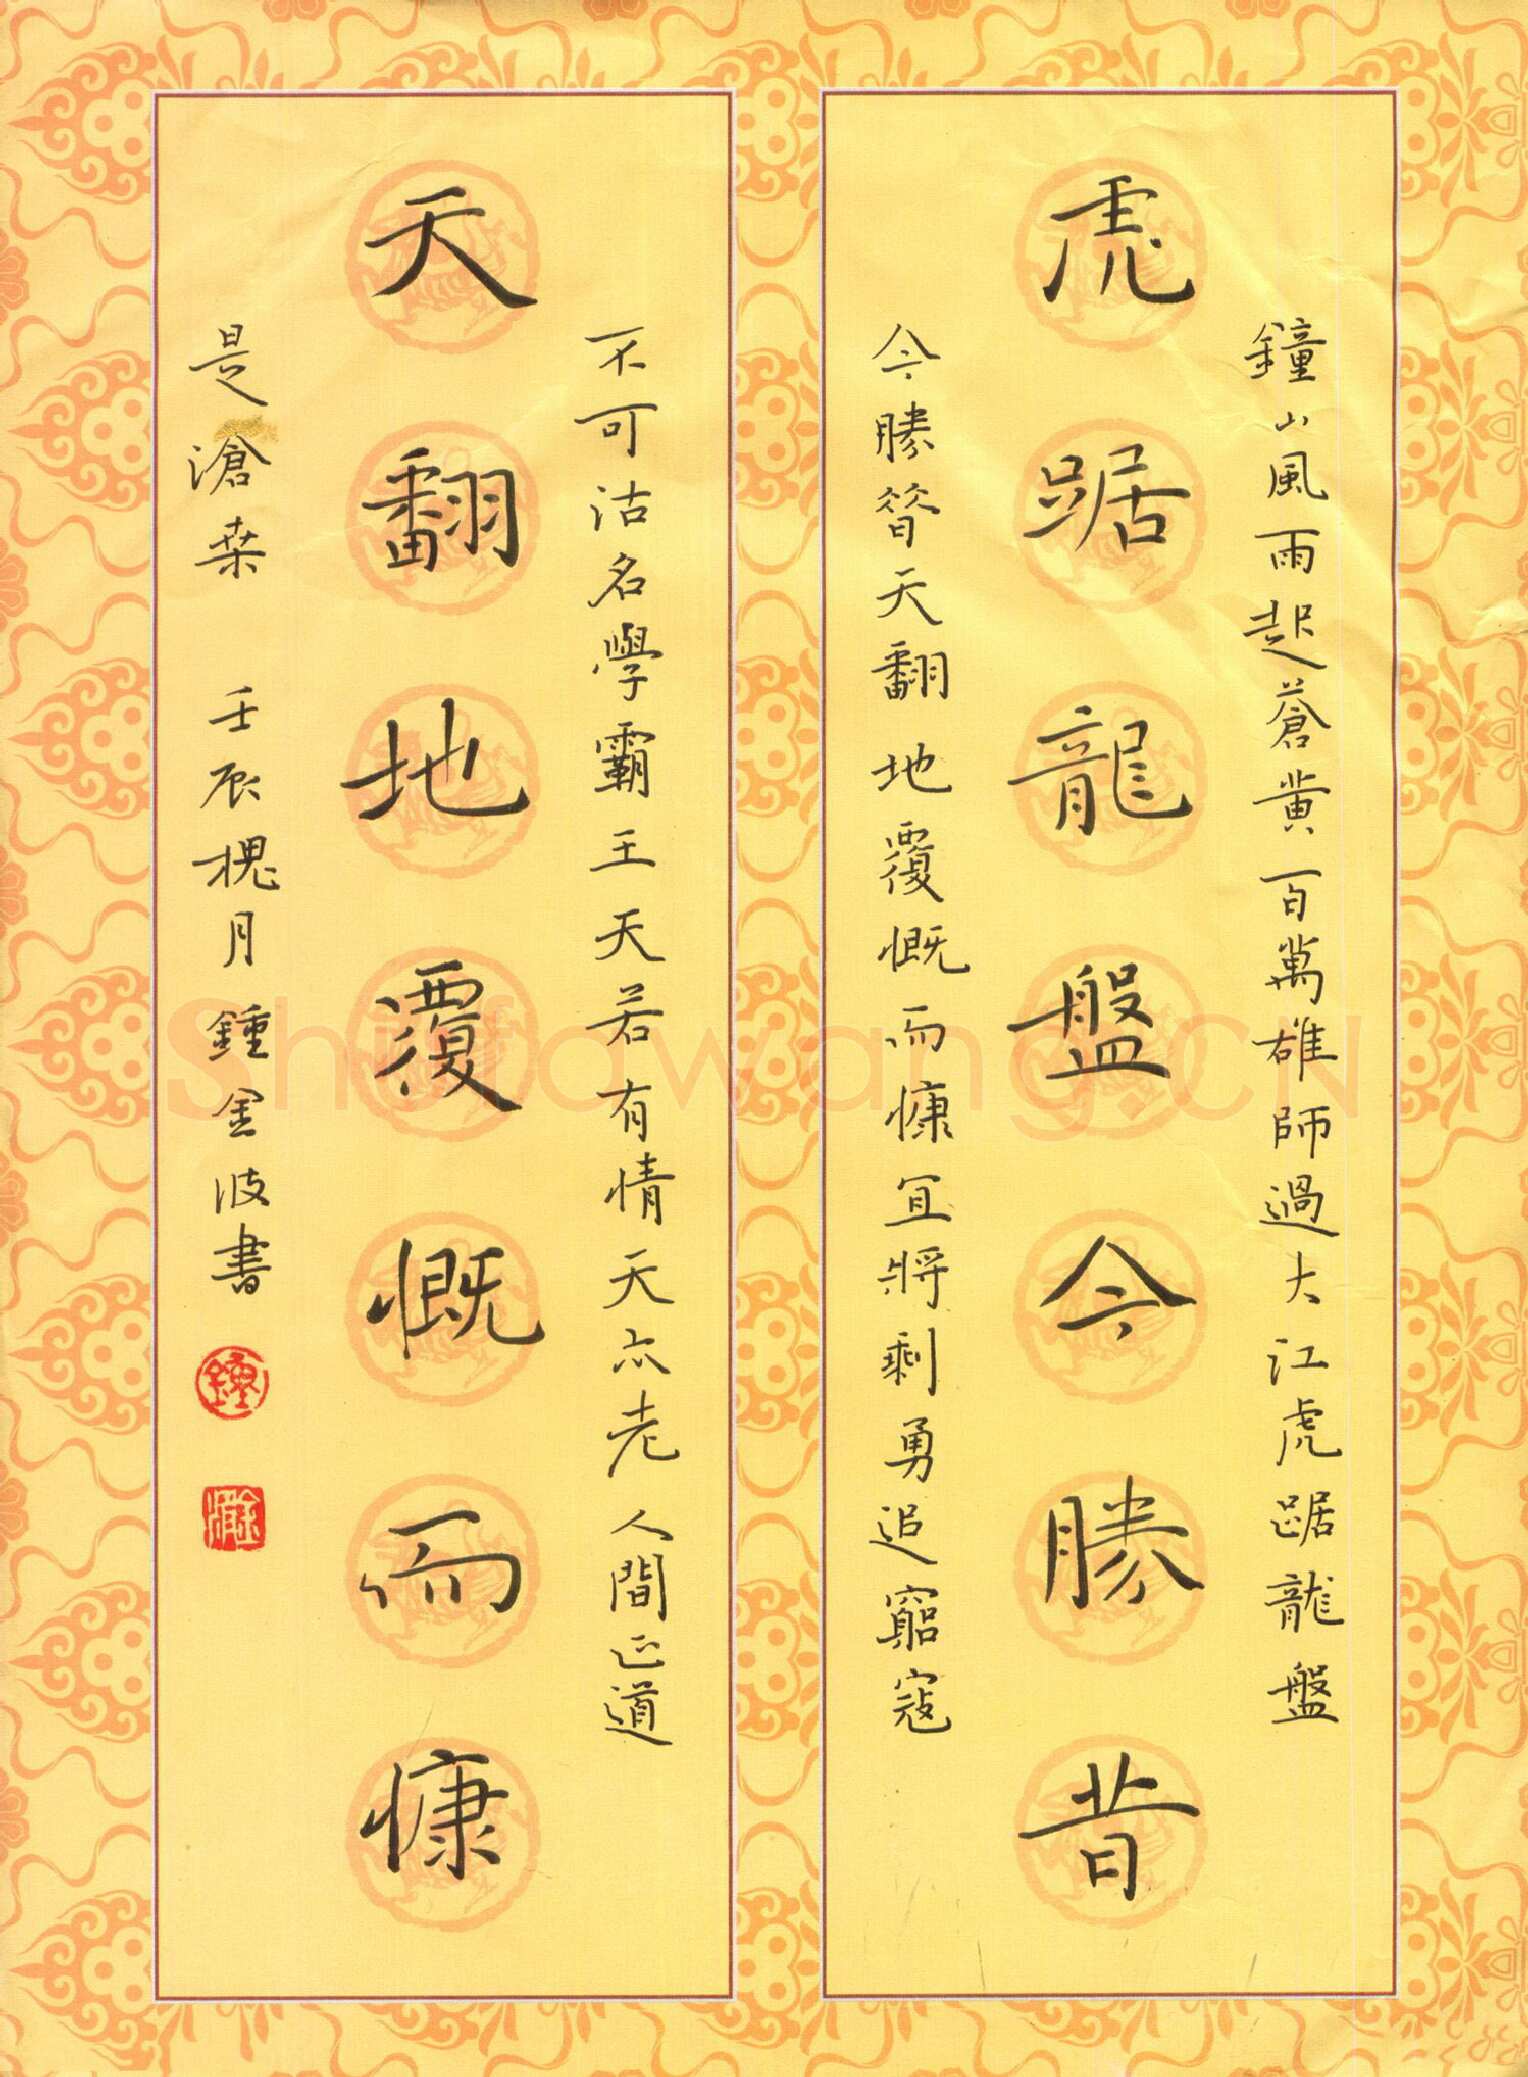 鐘山風雨起蒼黃百萬雄師過大江虎踞龍盤
虎踞龍盤今勝昔
今勝昔天翻地覆慨而慷宜將剩勇追竆寇
不可沽名學霸王天若有情天亦老人間正道
天翻地覆慨而慷
是滄桒 壬辰槐月鍾金波書
鍾
Shufawang.CN